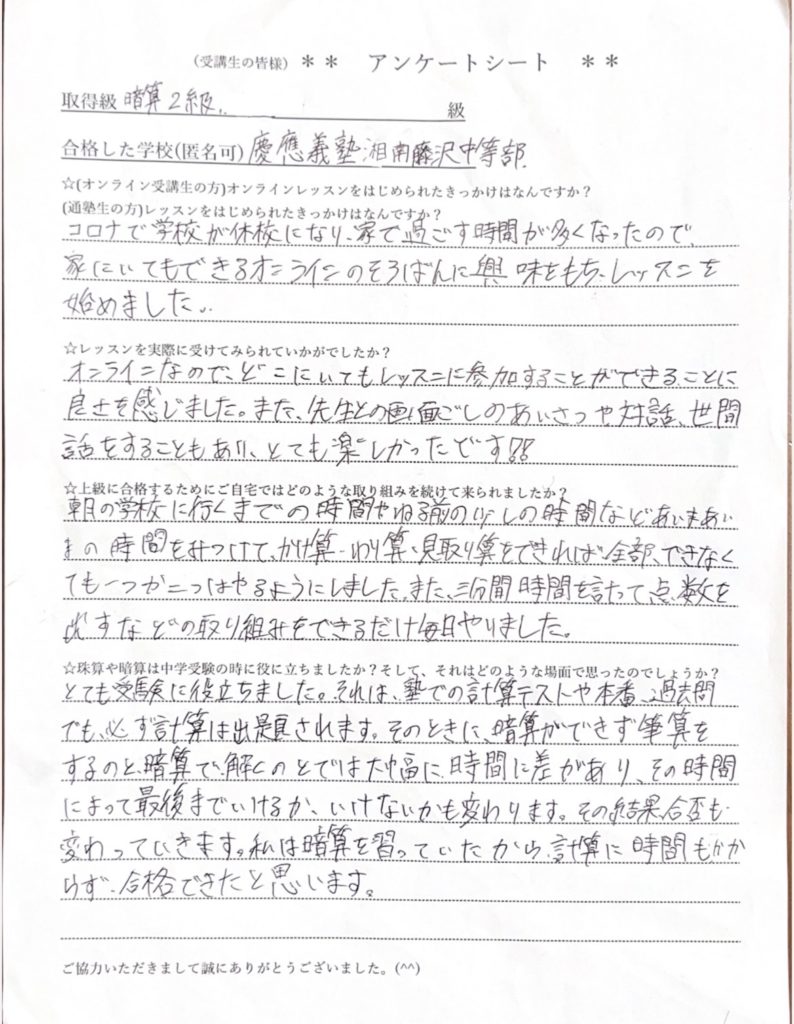 (受講生の皆様) ** アンケートシート **
取得級 暗算2級. 級
合格した学校(匿名可) 慶應義塾湘南藤沢中等部
☆(オンライン受講生の方)オンラインレッスンをはじめられたきっかけはなんですか?
(通塾生の方)レッスンをはじめられたきっかけはなんですか?
コロナで学校が休校になり、家で過ごす時間が多くなったので、
家にいてもできるオンラインのそろばんに興味をもち、レッスンを
始めました。
☆レッスンを実際に受けてみられていかがでしたか?
オンラインなので、どこにいてもレッスンに参加することができることに
良さを感じました。また、先生との画面ごしのあいさつや対話、世間
話をすることもあり、とても楽しかったです!!
☆上級に合格するためにご自宅ではどのような取り組みを続けて来られましたか?
朝の学校に行くまでの時間やねる前の少しの時間などあいまあい
まの時間をみつけて、かけ算・わり算・見取り算をできれば全部、できなく
ても一つか二つはやるようにしました。また、三分間時間を計って、点数を
出すなどの取り組みをできるだけ毎日やりました。
☆珠算や暗算は中学受験の時に役に立ちましたか?そして、それはどのような場面で思ったのでしょうか?
とても受験に役立ちました。それは、塾での計算テストや本番、過去問
でも、必ず計算は出題されます。そのときに、暗算ができず筆算を
するのと、暗算で解くのとでは大幅に時間に差があり、その時間
によって最後までいけるか、いけないかも変わります。その結果、合否も
変わっていきます。私は暗算を習っていたから、計算に時間もかか
らず、合格できたと思います。
ご協力いただきまして誠にありがとうございました。(^^)